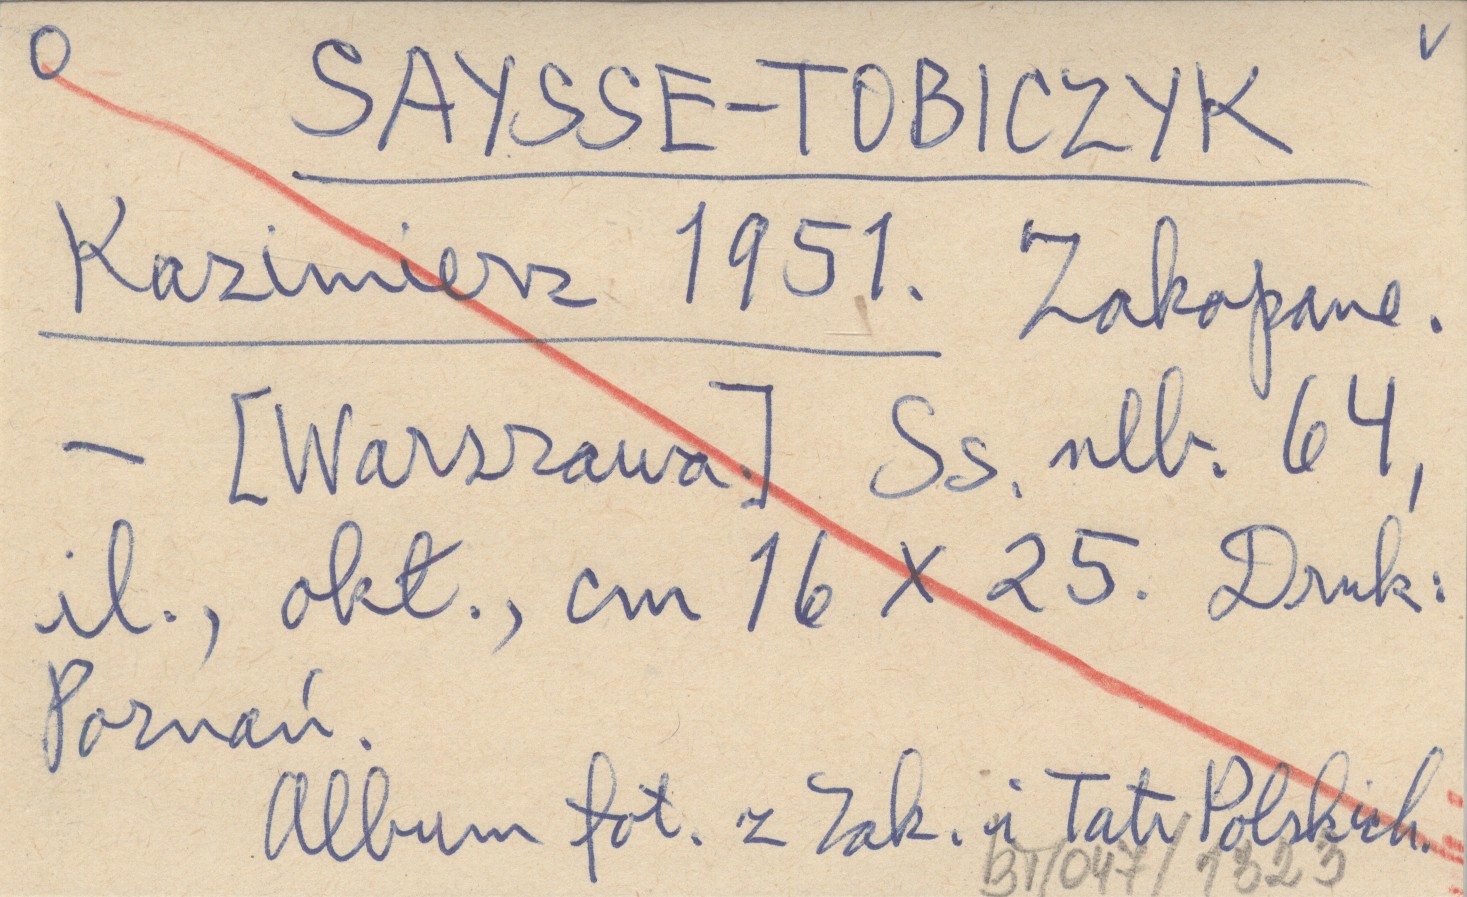 O SAYSSE-TOBICZYK v
Kazimierz 1951. Zakopane.
– [Warszawa.] Ss. nlb. 64,
il., okł., cm 16 x 25. Druk:
Poznań.
Album fot. z Zak. i Tatr Polskich.
BT/047/1323